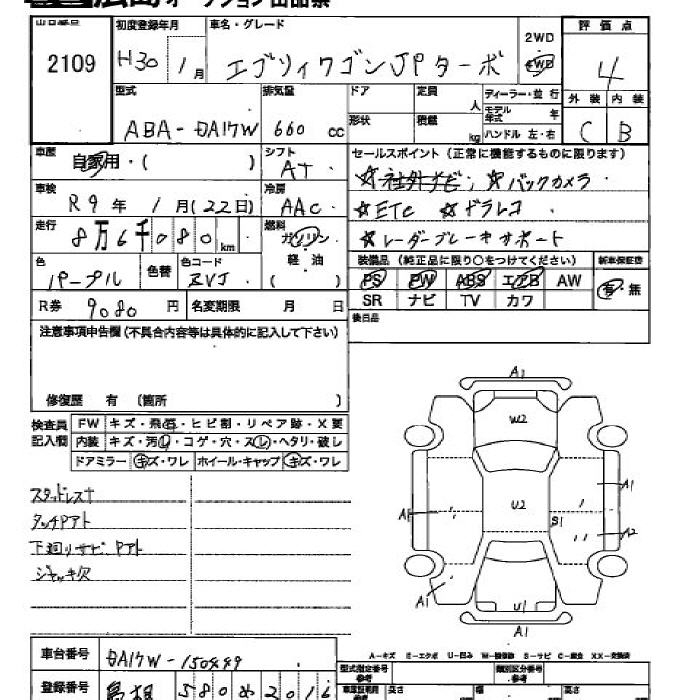 広島 オークション 出品票
出品番号 初度登録年月 車名・グレード 2WD 評価点
2109 H30 1月 エブリィワゴン JPターボ 4WD 4
型式 排気量 ドア 定員 人 ディーラー・並行 外装 内装
ABA-DA17W 660 cc 形状 積載 kg モデル年式 年 ハンドル 左・右 C B
車歴 自家用・( ) シフト AT セールスポイント(正常に機能するものに限ります)
車検 R9年 1月(22日) 冷房 AAC ☆社外ナビ ☆バックカメラ
☆ETC ☆ドラレコ
走行 8万6千080km 燃料 ガソリン ☆レーダーブレーキサポート
軽油 ( )
色 パープル 色替 色コード ZVJ 装備品(純正品に限り○をつけてください) 新車保証書
PS PW ABS エアB AW 有・無
R券 9080円 名変期限 月 日 SR ナビ TV カワ
注意事項申告欄(不具合内容等は具体的に記入して下さい) 後日品
修復歴 有 (箇所 )
検査員記入欄 FW キズ・飛石・ヒビ割・リペア跡・X要
内装 キズ・汚レ・コゲ・穴・スレ・ヘタリ・破レ
ドアミラー キズ・ワレ ホイール・キャップ キズ・ワレ
スタッドレス†
タッチPアト
下廻りサビ Pアト
ジャッキ欠
A1
W2
A1
A1 U2 S1 A2
A1 U1
A1
A-キズ E-エクボ U-凹み W-補修跡 S-サビ C-腐食 XX-交換済
車台番号 DA17W-150499 型式指定番号 参考 類別区分番号 参考
登録番号 島根 580 め 2016 車庫証明用 参考 長さ 幅 高さ